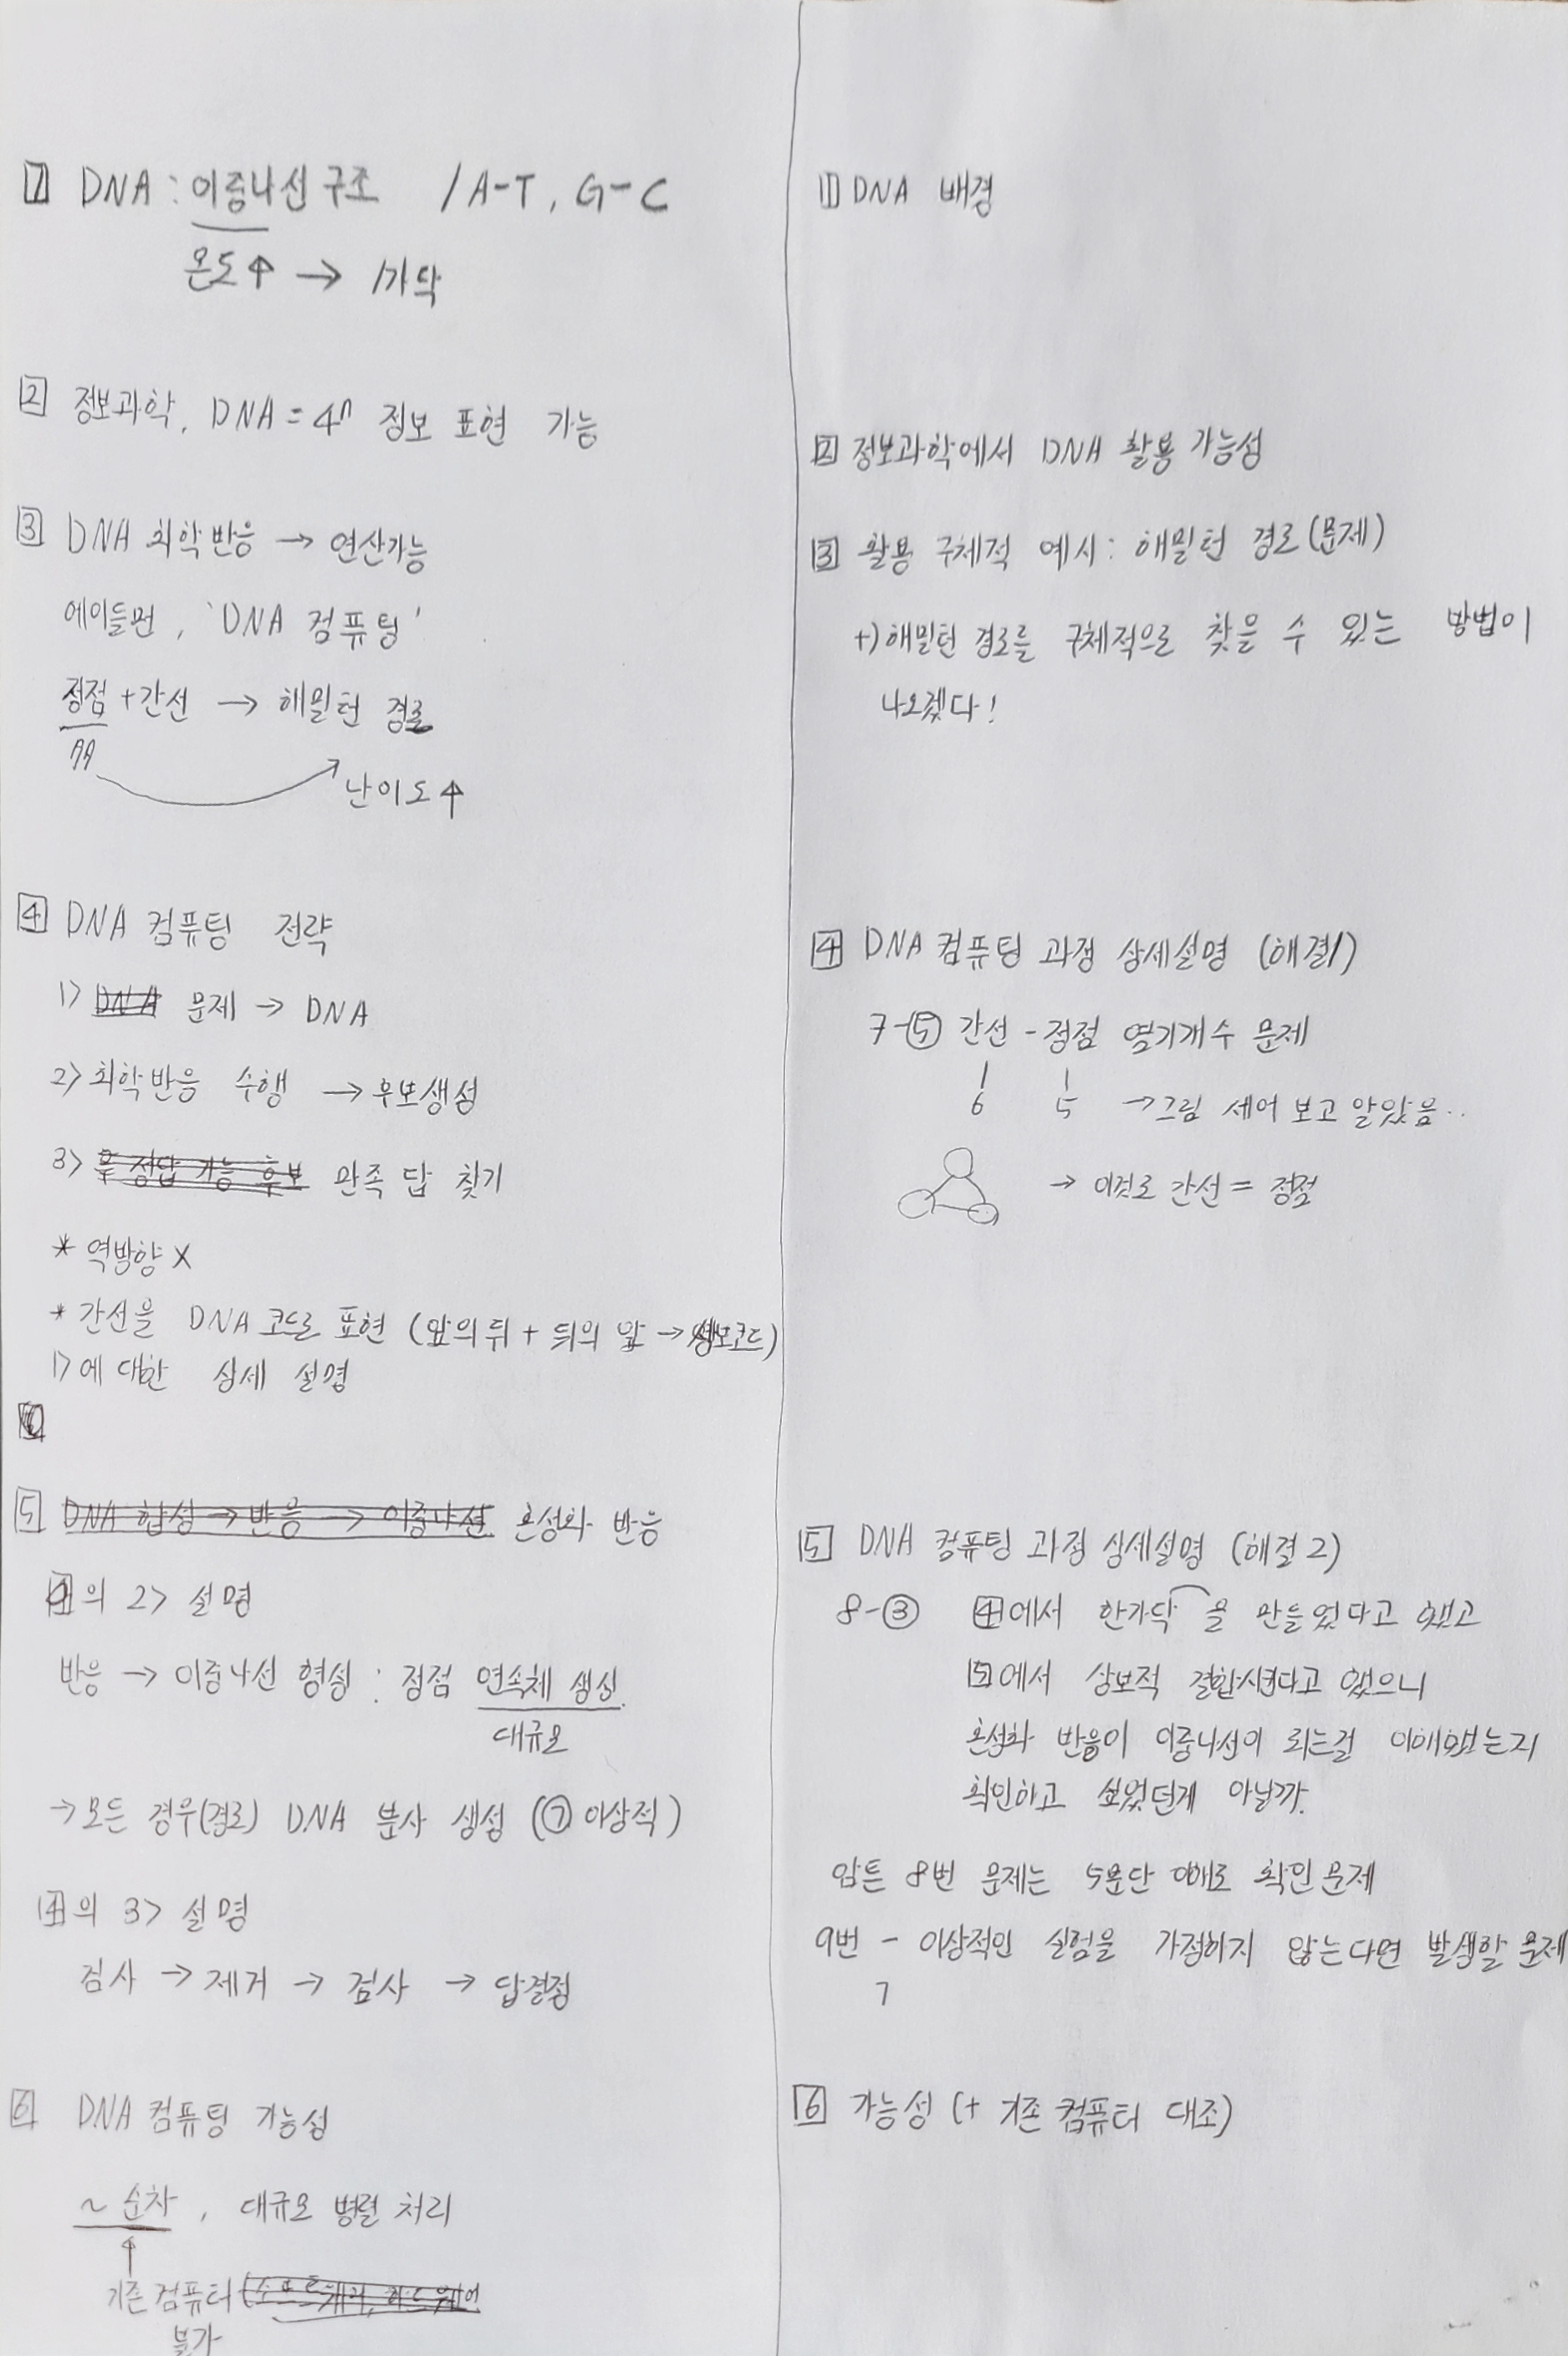 1 DNA : 이중나선 구조 / A-T, G-C
온도↑ → 1가닥
2 정보과학, DNA = 4ⁿ 정보 표현 가능
3 DNA 화학반응 → 연산가능
에이들먼, 'DNA 컴퓨팅'
정점 + 간선 → 해밀턴 경로
난이도↑
4 DNA 컴퓨팅 전략
1> 문제 → DNA
2> 화학반응 수행 → 후보생성
3> 만족 답 찾기
* 역방향 X
* 간선을 DNA 코드로 표현 (앞의 뒤 + 뒤의 앞 → 상보코드)
1>에 대한 상세 설명
5 DNA 합성 → 반응 → 이중나선 혼성화 반응
4의 2> 설명
반응 → 이중나선 형성 : 정점 연속체 생성
대규모
→ 모든 경우(경로) DNA 분자 생성 (⑦ 이상적)
4의 3> 설명
검사 → 제거 → 검사 → 답결정
6 DNA 컴퓨팅 가능성
~ 순차, 대규모 병렬 처리
↑
기존 컴퓨터
불가
1 DNA 배경
2 정보과학에서 DNA 활용 가능성
3 활용 구체적 예시 : 해밀턴 경로(문제)
+) 해밀턴 경로를 구체적으로 찾을 수 있는 방법이
나오겠다!
4 DNA 컴퓨팅 과정 상세설명 (해결1)
7-⑤ 간선 - 정점 염기개수 문제
6 5 → 그림 세어 보고 알았음..
→ 이걸로 간선 = 정점
5 DNA 컴퓨팅 과정 상세설명 (해결 2)
8-③ 4에서 한가닥을 만들었다고 했고
5에서 상보적 결합시킨다고 했으니
혼성화 반응이 이중나선이 되는걸 이해했는지
확인하고 싶었던게 아닐까.
암튼 8번 문제는 5문단 이해도 확인 문제
9번 - 이상적인 실험을 가정하지 않는다면 발생할 문제
7
6 가능성 (+ 기존 컴퓨터 대조)